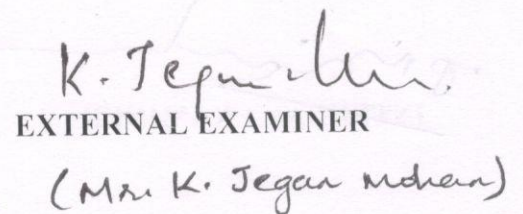 K. Jegan
EXTERNAL EXAMINER
(Mr. K. Jegan Mohan)